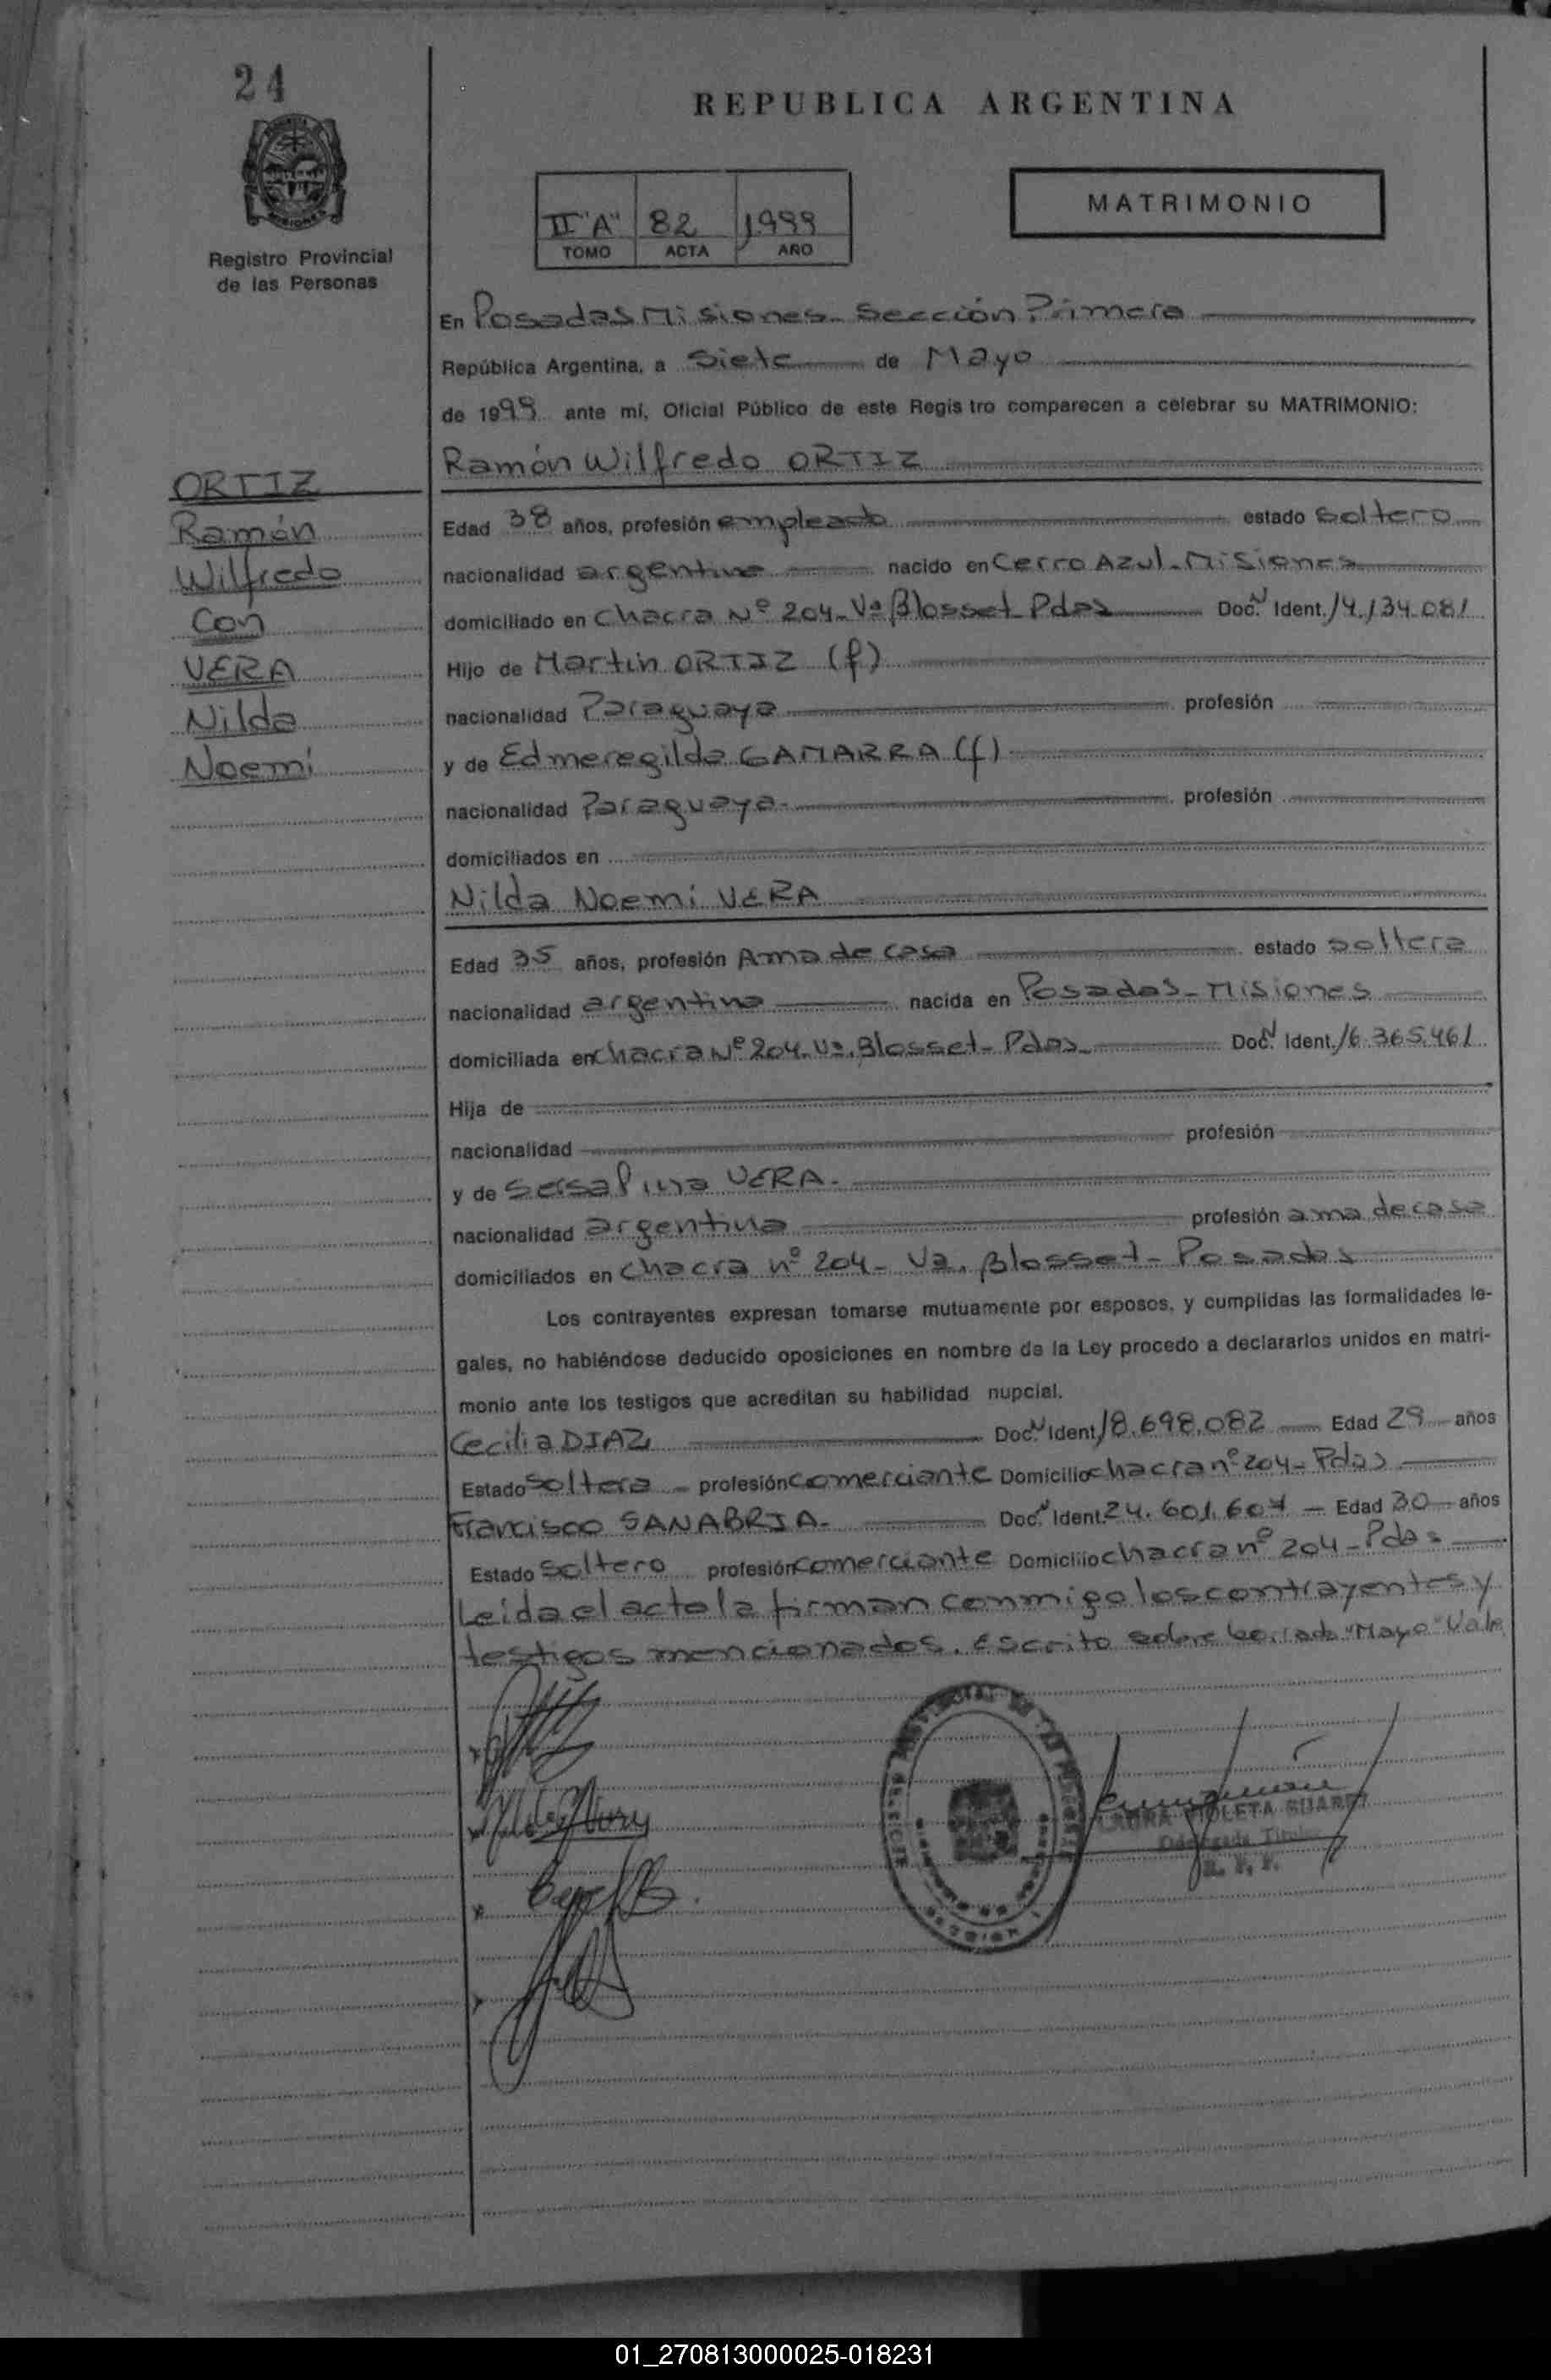 24
REPUBLICA ARGENTINA
Registro Provincial
de las Personas
II "A" 82 1999
TOMO ACTA AÑO
MATRIMONIO
En Posadas Misiones - Sección Primera
República Argentina, a Siete de Mayo
de 1999 ante mí, Oficial Público de este Registro comparecen a celebrar su MATRIMONIO:
Ramón Wilfredo ORTIZ
ORTIZ
Ramón
Wilfredo
Con
VERA
Nilda
Noemi
Edad 38 años, profesión empleado estado soltero
nacionalidad argentino nacido en Cerro Azul - Misiones
domiciliado en Chacra Nº 204 - Va Blosset - Pdas Doc. N Ident. 14.134.081
Hijo de Martin ORTIZ (f)
nacionalidad Paraguaya profesión
y de Edmeregilda GAMARRA (f)
nacionalidad Paraguaya - profesión
domiciliados en
Nilda Noemi VERA
Edad 35 años, profesión Ama de casa estado soltera
nacionalidad argentina nacida en Posadas - Misiones
domiciliada en Chacra Nº 204 - Va. Blosset - Pdas - Doc. N Ident. 16.365.461
Hija de
nacionalidad profesión
y de VERA -
nacionalidad argentina profesión ama de casa
domiciliados en Chacra nº 204 - Va. Blosset - Posadas
Los contrayentes expresan tomarse mutuamente por esposos, y cumplidas las formalidades le-
gales, no habiéndose deducido oposiciones en nombre de la Ley procedo a declararlos unidos en matri-
monio ante los testigos que acreditan su habilidad nupcial.
Cecilia DIAZ Doc. N Ident. 18.698.082 Edad 29 años
Estado soltera - profesión comerciante Domicilio chacra nº 204 - Pdas
Francisco SANABRIA - Doc. N Ident. 24.601.604 - Edad 30 años
Estado soltero profesión comerciante Domicilio chacra nº 204 - Pdas
Leida el acta la firman conmigo los contrayentes y
testigos mencionados. Escrito sobre borrado "Mayo" Vale
LAURA VIOLETA SUAREZ
Delegada Titular
R. P. P.
01_270813000025-018231